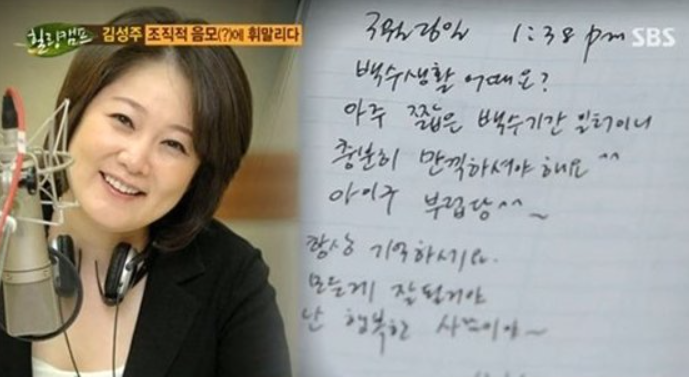 힐링캠프 김성주 조직적 음모(?)에 휘말리다
SBS
3월 29일 1:38 pm
백수생활 어때요?
아주 짧은 백수기간 일터이니
충분히 만끽하셔야 해요^^
아이구 부럽당^^~
항상 기억하세요.
모든게 잘 될거야
난 행복한 사람이야~